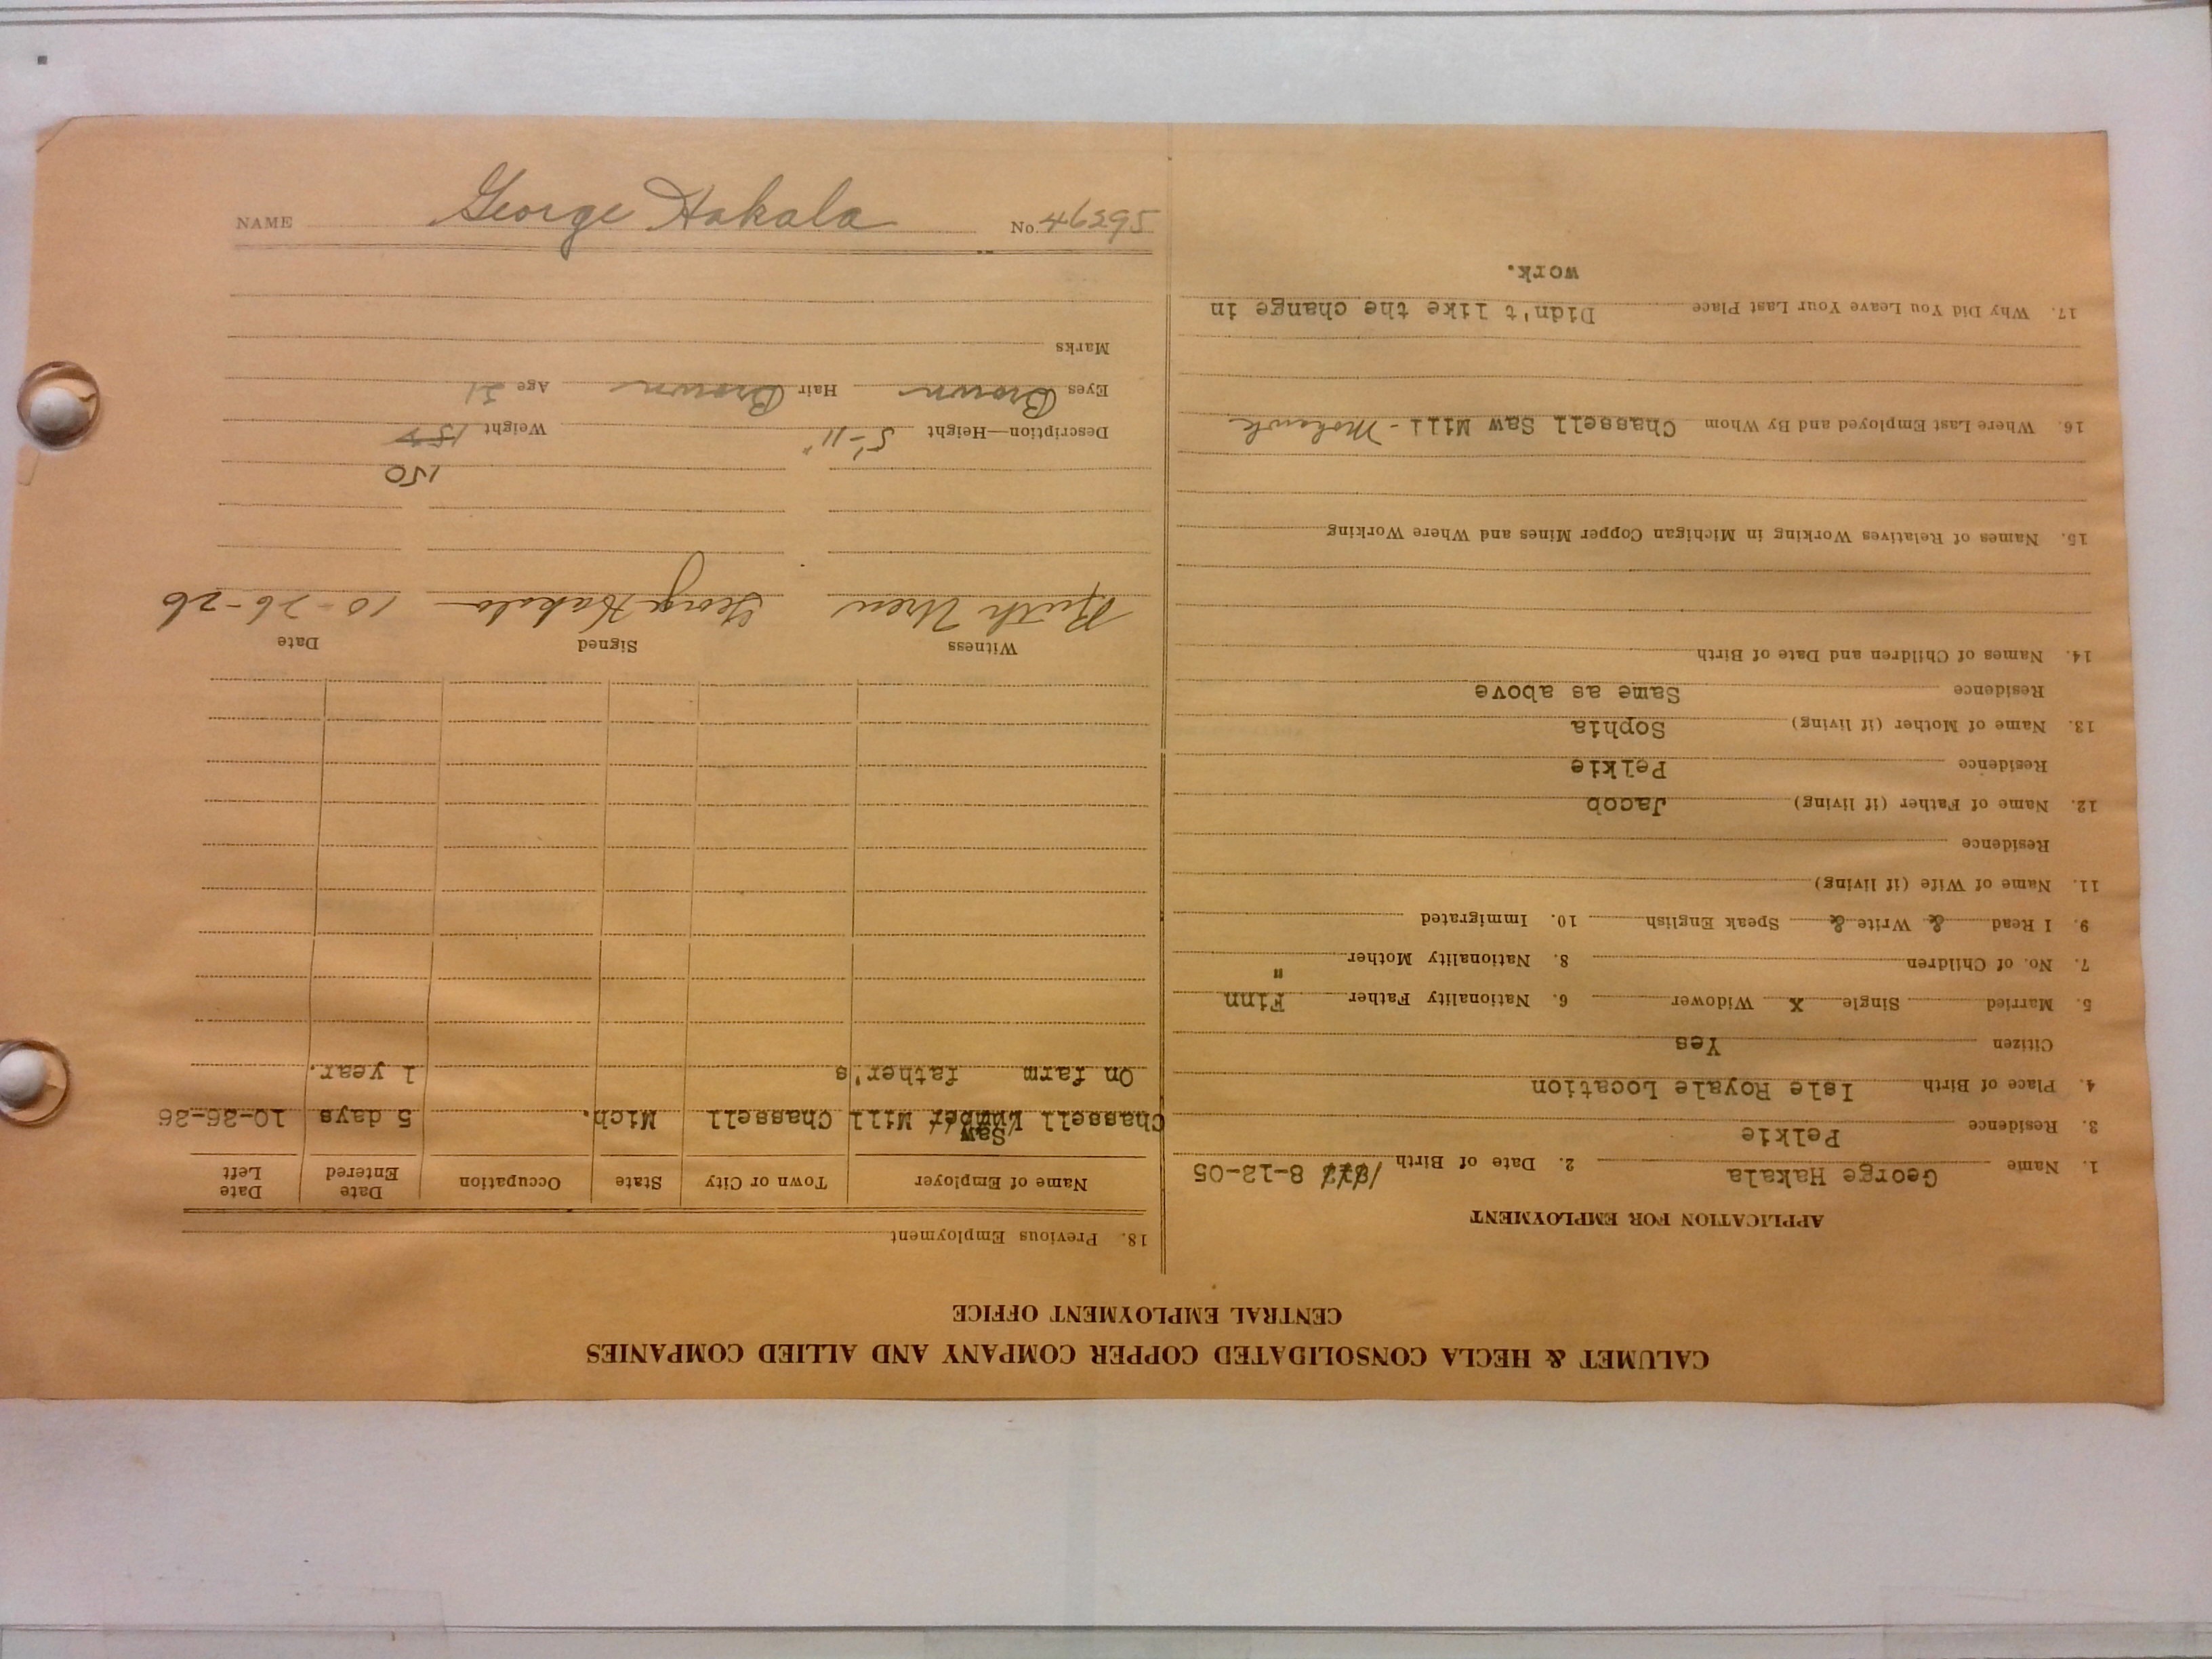 NAME George Hakala No. 46295
CALUMET & HECLA CONSOLIDATED COPPER COMPANY AND ALLIED COMPANIES
CENTRAL EMPLOYMENT OFFICE
APPLICATION FOR EMPLOYMENT
1. Name George Hakala 2. Date of Birth 8-12-05
3. Residence Pelkie
4. Place of Birth Isle Royale Location
Citizen Yes
5. Married Single X Widower 6. Nationality Father Finn
7. No. of Children 8. Nationality Mother "
9. I Read & Write & Speak English 10. Immigrated
11. Name of Wife (if living)
Residence
12. Name of Father (if living) Jacob
Residence Pelkie
13. Name of Mother (if living) Sophia
Residence Same as above
14. Names of Children and Date of Birth
15. Names of Relatives Working in Michigan Copper Mines and Where Working
16. Where Last Employed and By Whom Chassell Saw Mill - Mohawk
17. Why Did You Leave Your Last Place Didn't like the change in
work.
18. Previous Employment
Name of Employer Town or City State Occupation Date Entered Date Left
Saw
Chassell Lumber Mill Chassell Mich. 5 days 10-26-26
On farm father's 1 year.
Witness Signed Date
Ruth Uren George Hakala 10-26-26
150
Description—Height 5'-11" Weight
Eyes Brown Hair Brown Age 21
Marks